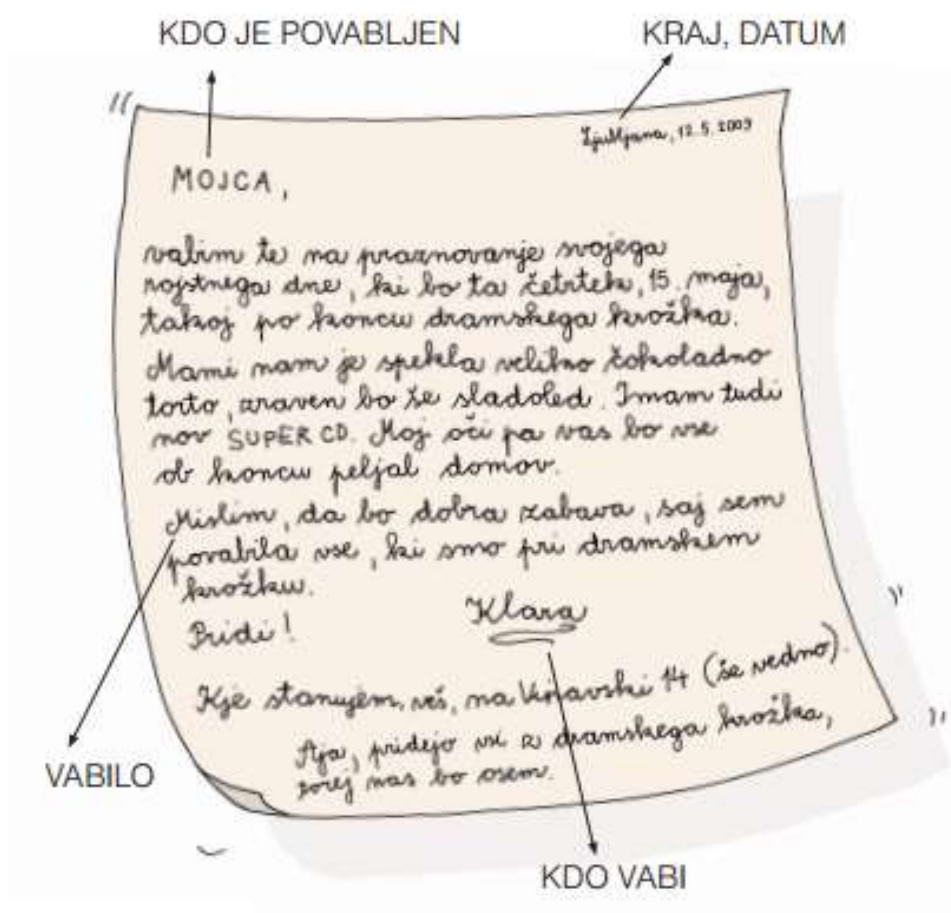 KDO JE POVABLJEN
KRAJ, DATUM
Ljubljana, 12. 5. 2009
MOJCA,
vabim te na praznovanje svojega
rojstnega dne, ki bo ta četrtek, 15. maja,
takoj po koncu dramskega krožka.
Mami nam je spekla veliko čokoladno
torto, zraven bo še sladoled. Imam tudi
nov SUPER CD. Moj oči pa vas bo vse
ob koncu peljal domov.
Mislim, da bo dobra zabava, saj sem
povabila vse, ki smo pri dramskem
krožku.
Pridi!
Klara
Kje stanujem, veš, na 14 (še vedno).
Aja, pridejo vsi z dramskega krožka,
torej nas bo osem.
VABILO
KDO VABI